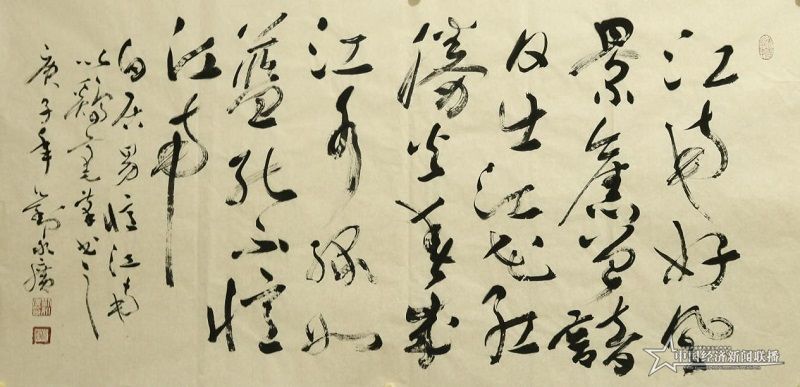 江南好風
景舊曾諳
日出江花红
勝火春来
江水绿如
藍能不憶
江南
白居易憶江南
以鷄毫草书之
庚子年劉永
中国经济新闻联播